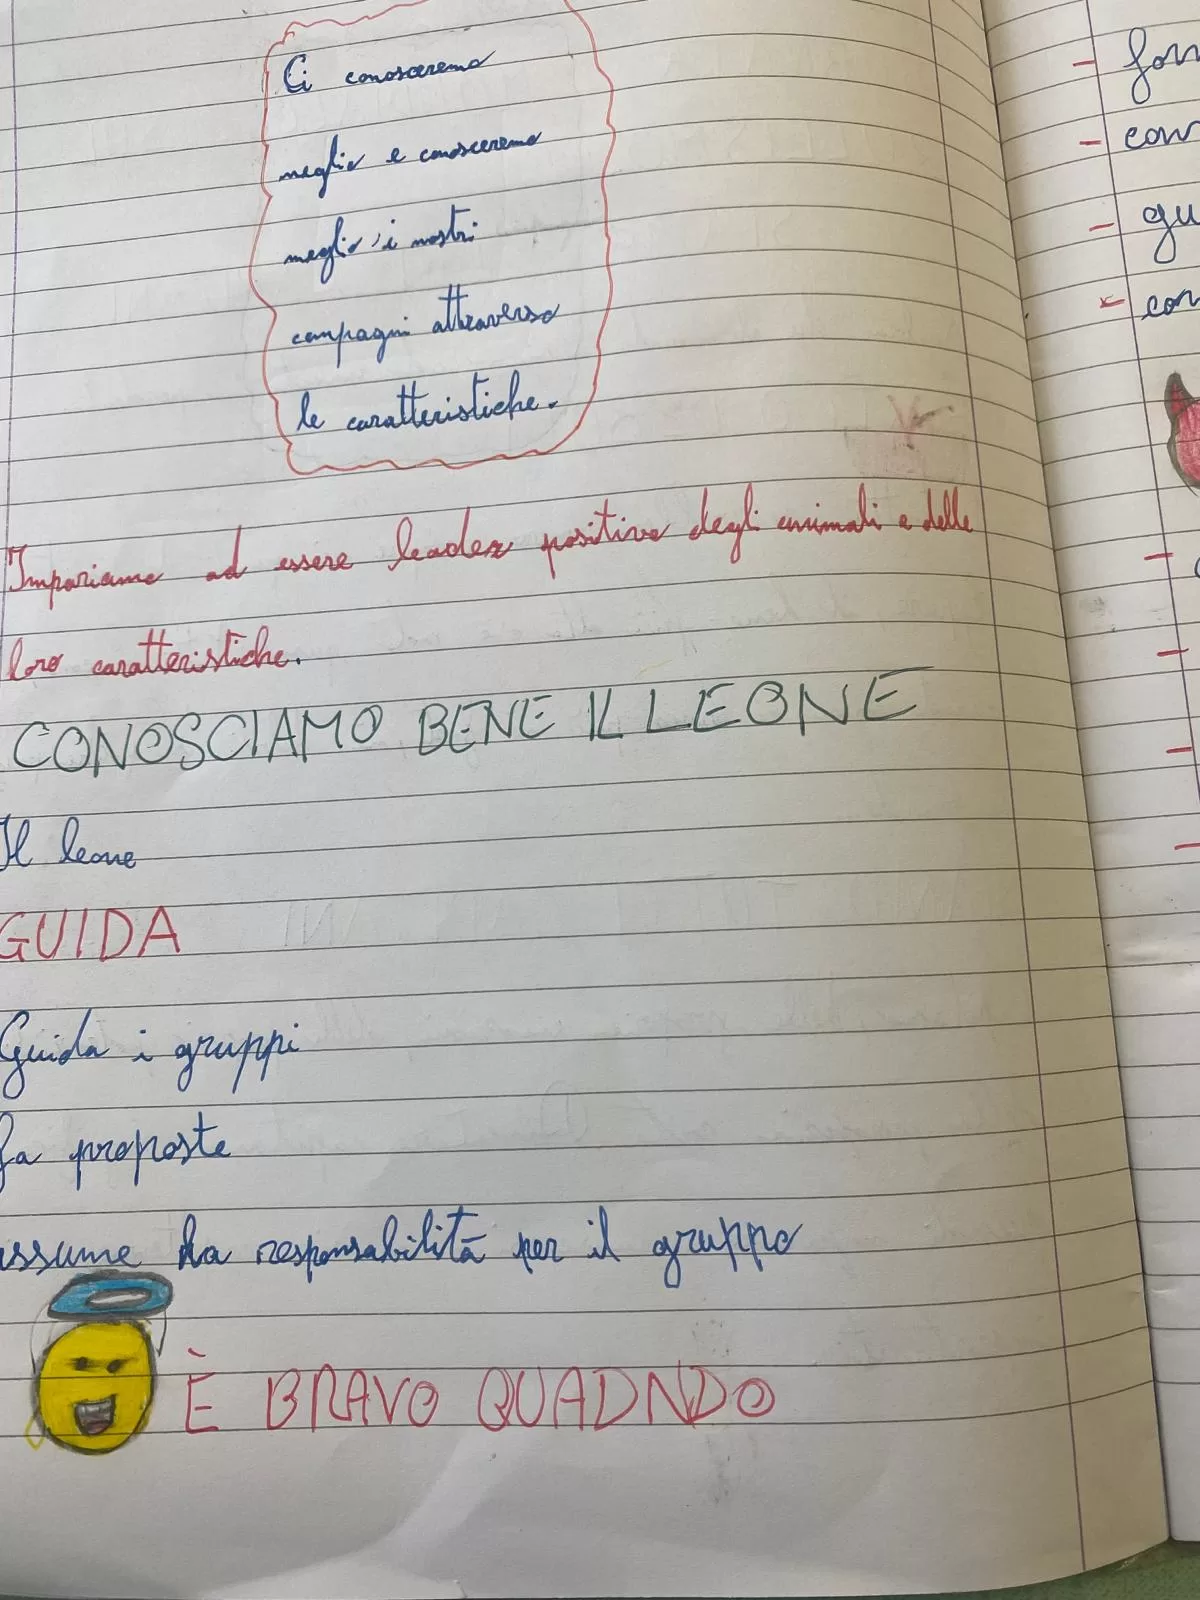 Ci conosceremo
meglio e conosceremo
meglio i nostri
compagni attraverso
le caratteristiche.
Impariamo ad essere leader positivo degli animali e delle
loro caratteristiche.
CONOSCIAMO BENE IL LEONE
Il leone
GUIDA
Guida i gruppi
fa proposte
assume ha responsabilità per il gruppo
È BRAVO QUADNDO